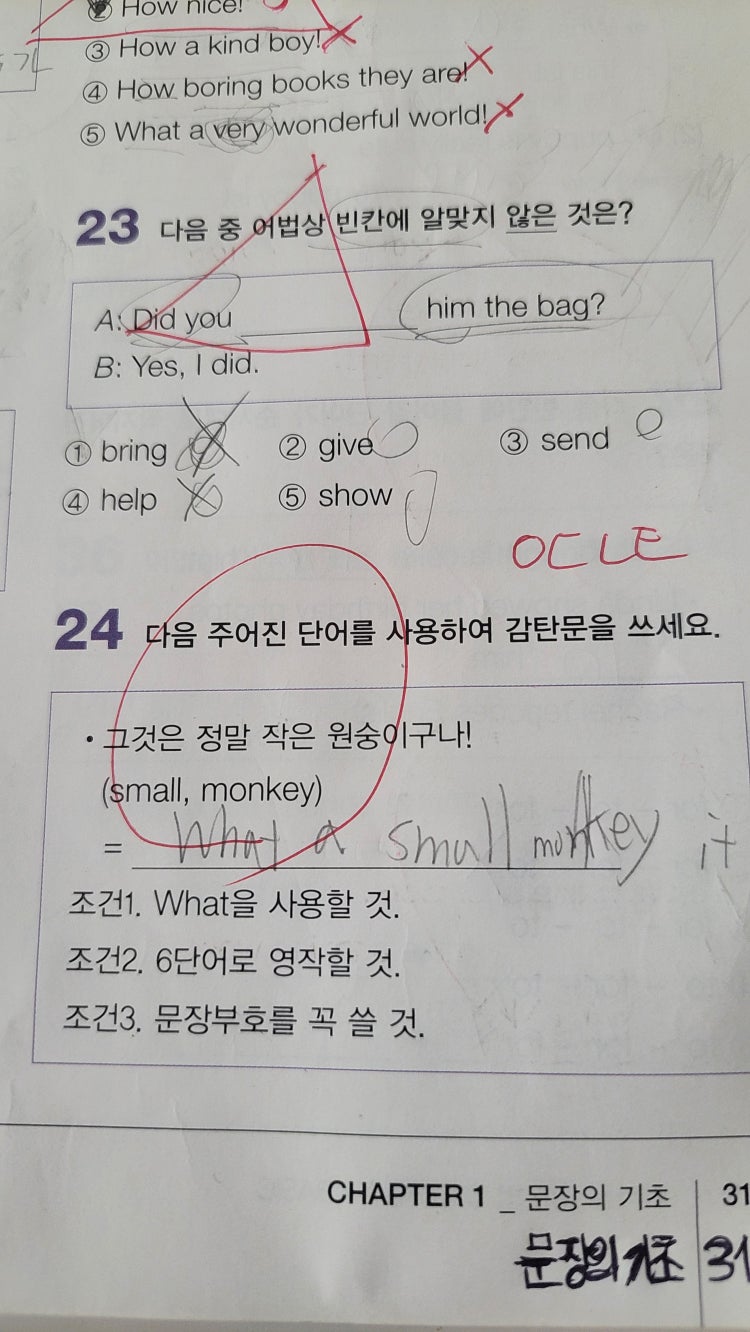 ② How nice!
③ How a kind boy!
④ How boring books they are!
⑤ What a very wonderful world!
23 다음 중 어법상 빈칸에 알맞지 않은 것은?
A: Did you ____________ him the bag?
B: Yes, I did.
① bring ② give ③ send
④ help ⑤ show
OCLE
24 다음 주어진 단어를 사용하여 감탄문을 쓰세요.
• 그것은 정말 작은 원숭이구나!
(small, monkey)
= What a small monkey it
조건1. What을 사용할 것.
조건2. 6단어로 영작할 것.
조건3. 문장부호를 꼭 쓸 것.
CHAPTER 1 _ 문장의 기초 31
문장의 기초 31